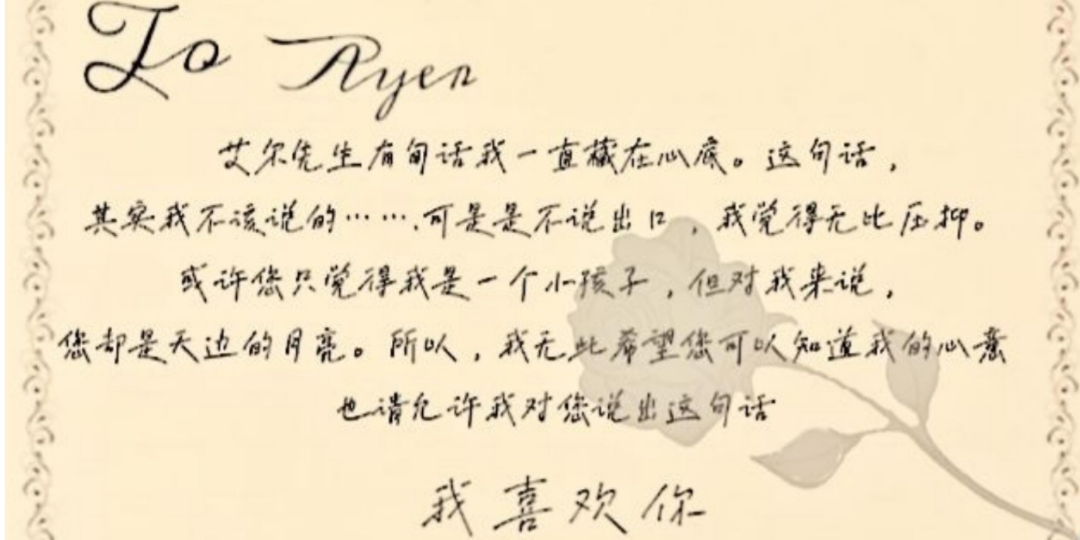 To Ayer
艾尔先生有句话我一直藏在心底。这句话，
其实我不该说的…….可是是不说出口，我觉得无比压抑。
或许您只觉得我是一个小孩子，但对我来说，
您却是天边的月亮。所以，我无比希望您可以知道我的心意
也请允许我对您说出这句话
我喜欢你